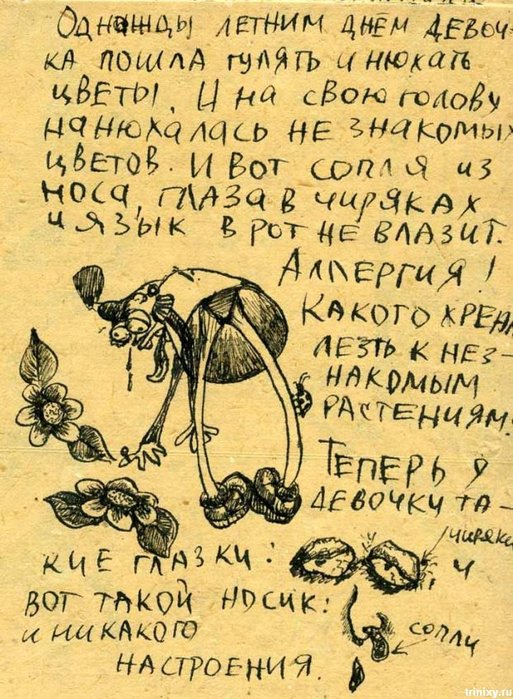 Однажды летним днём девоч-
ка пошла гулять и нюхать
цветы. И на свою голову
нанюхалась не знакомых
цветов. И вот сопля из
носа, глаза в чиряках
и язык в рот не влазит.
Аллергия!
Какого хрена
лезть к нез-
накомым
растениям.
Теперь у
девочки та-
чиряки
кие глазки: и
вот такой носик:
сопли
и никакого
настроения.
trinixy.ru